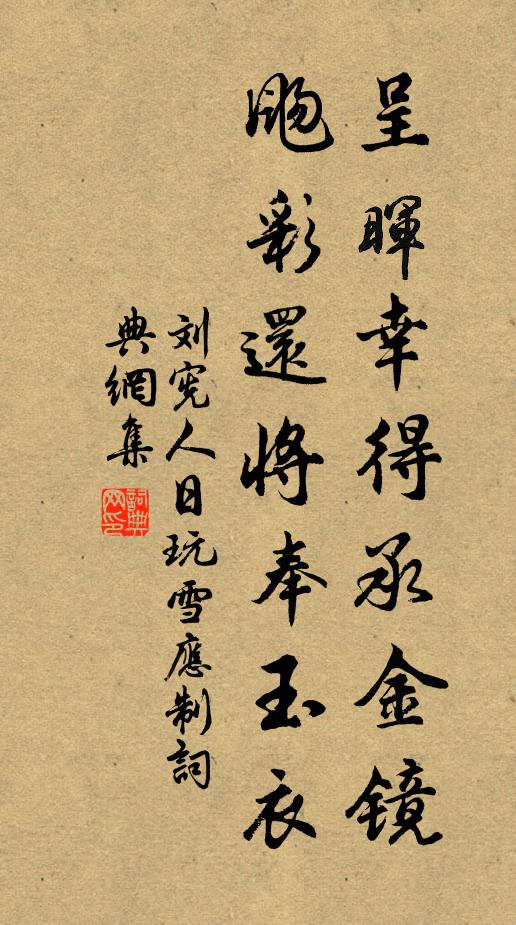 呈暉幸得承金鏡
颺彩還將奉玉衣
刘宪人日玩雪應制詞
典網集
詞典网印